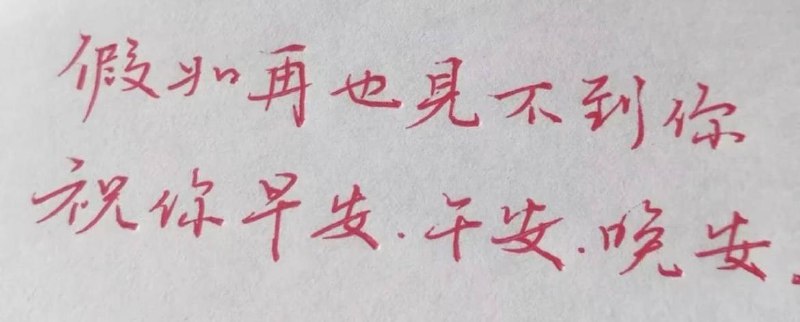 假如再也見不到你
祝你早安.午安.晚安.